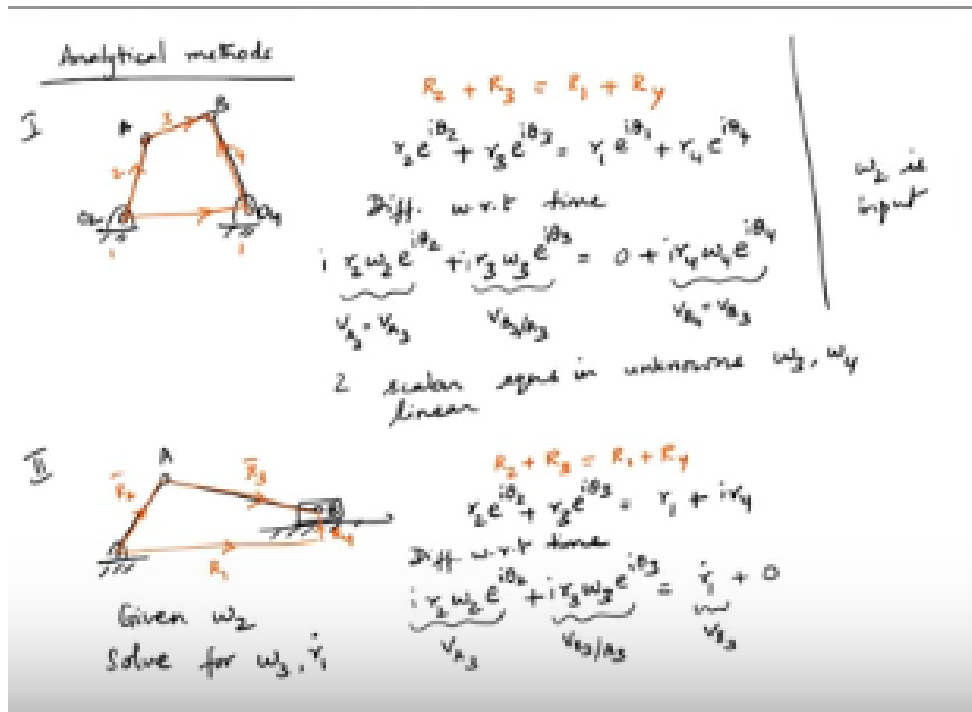 Analytical methods
I
A 3 B
2 4
O2 O4
1 1
R2 + R3 = R1 + R4
r2 e^iθ2 + r3 e^iθ3 = r1 e^iθ1 + r4 e^iθ4
Diff. w.r.t time
i r2 ω2 e^iθ2 + i r3 ω3 e^iθ3 = 0 + i r4 ω4 e^iθ4
VA2 = VA3 VB3/A3 VB4 = VB3
2 scalar eqns in unknowns ω3, ω4
linear
ω2 is
input
II
A
R2 R3
R4
R1
Given ω2
Solve for ω3, ṙ1
R2 + R3 = R1 + R4
r2 e^iθ2 + r3 e^iθ3 = r1 + i r4
Diff w.r.t time
i r2 ω2 e^iθ2 + i r3 ω3 e^iθ3 = ṙ1 + 0
VA3 VB3/A3 VB3